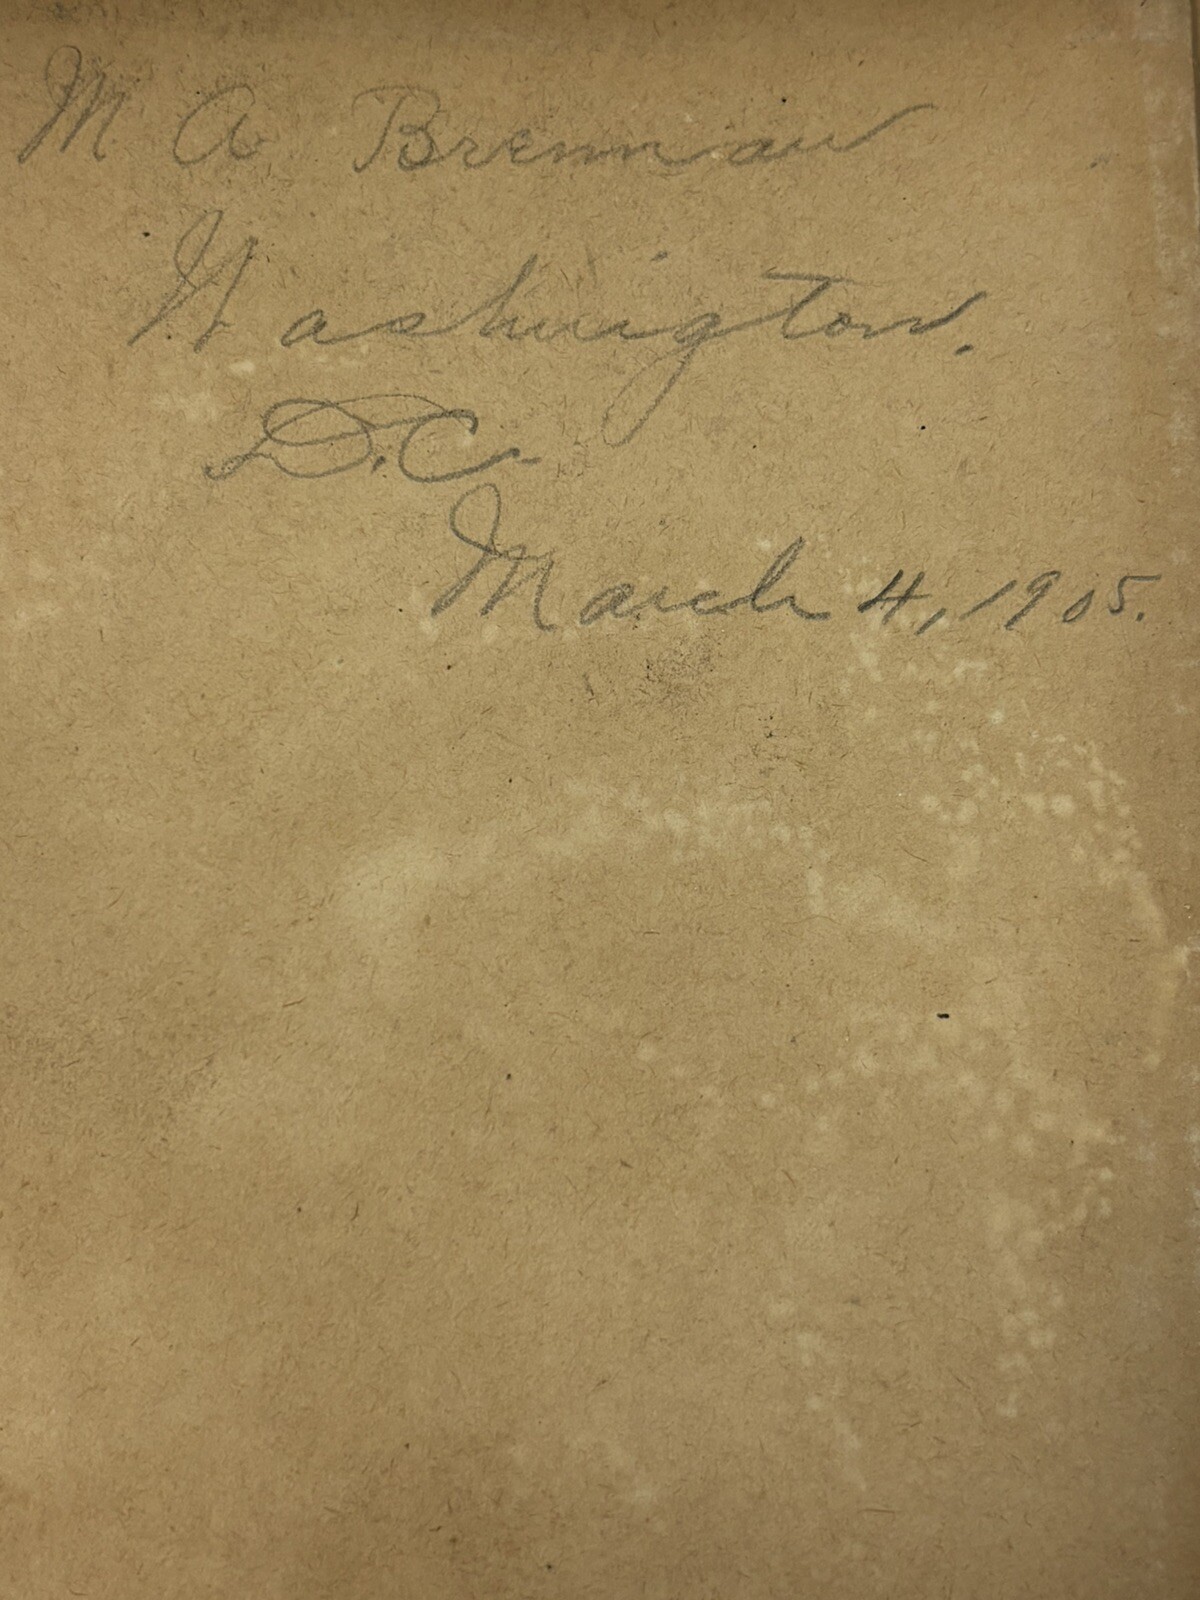 M A Brennan
Washington.
D.C.
March 4, 1905.